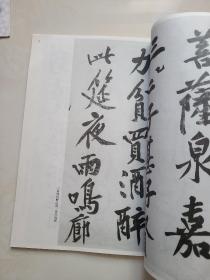 菩薩泉嘉
力貧買酒醉
此筵夜雨鳴廊